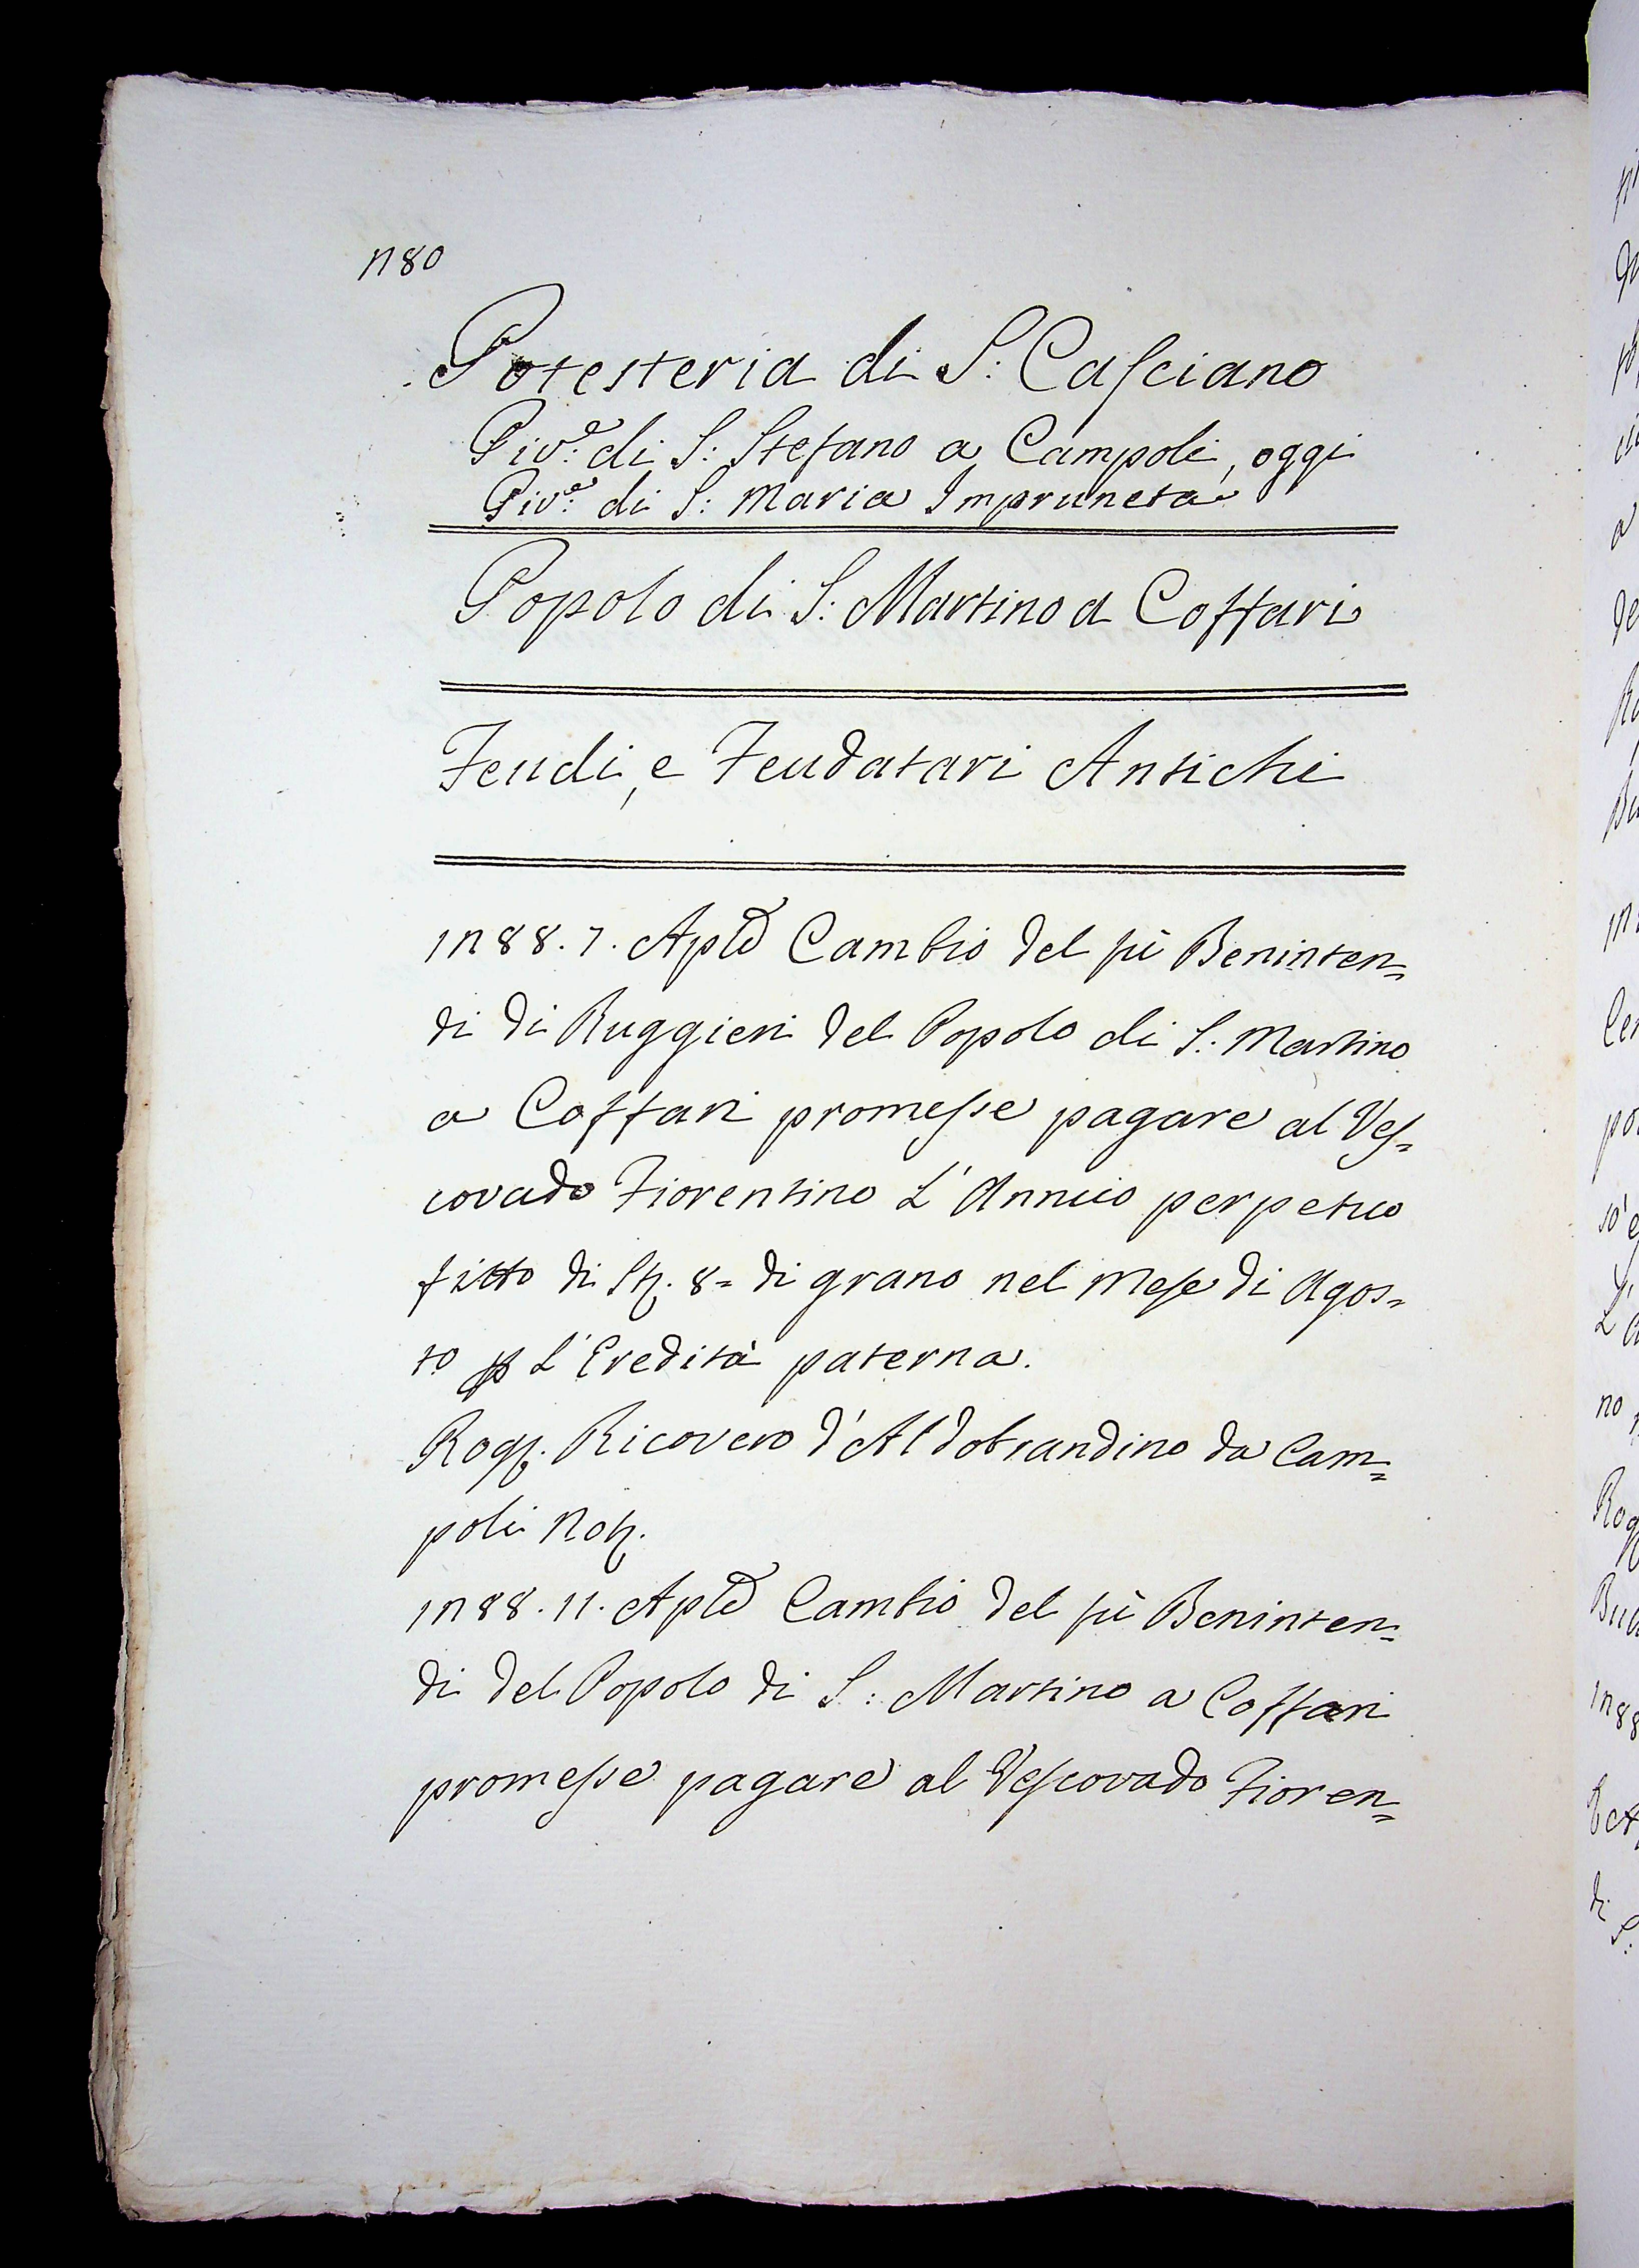 280
Potesteria di S: Casciano
Piv.e di S: Stefano a Campoli, oggi
Piv.e di S: Maria Impruneta
Popolo di S: Martino a Coffari
Feudi, e Feudatari Antichi
1288. 7. Aple Cambio del fù Beninten=
di di Ruggieri del Popolo di S: Martino
a Coffari promesse pagare al Ves=
covado Fiorentino L'Annuo perpetuo
fitto di St. 8= di grano nel Mese di Agos=
to p L'Eredità paterna.
Rog. Ricovero d'Aldobrandino da Cam=
poli Not.
1288. 11. Aple Cambio del fù Beninten=
di del Popolo di S: Martino a Coffari
promesse pagare al Vescovado Fioren=